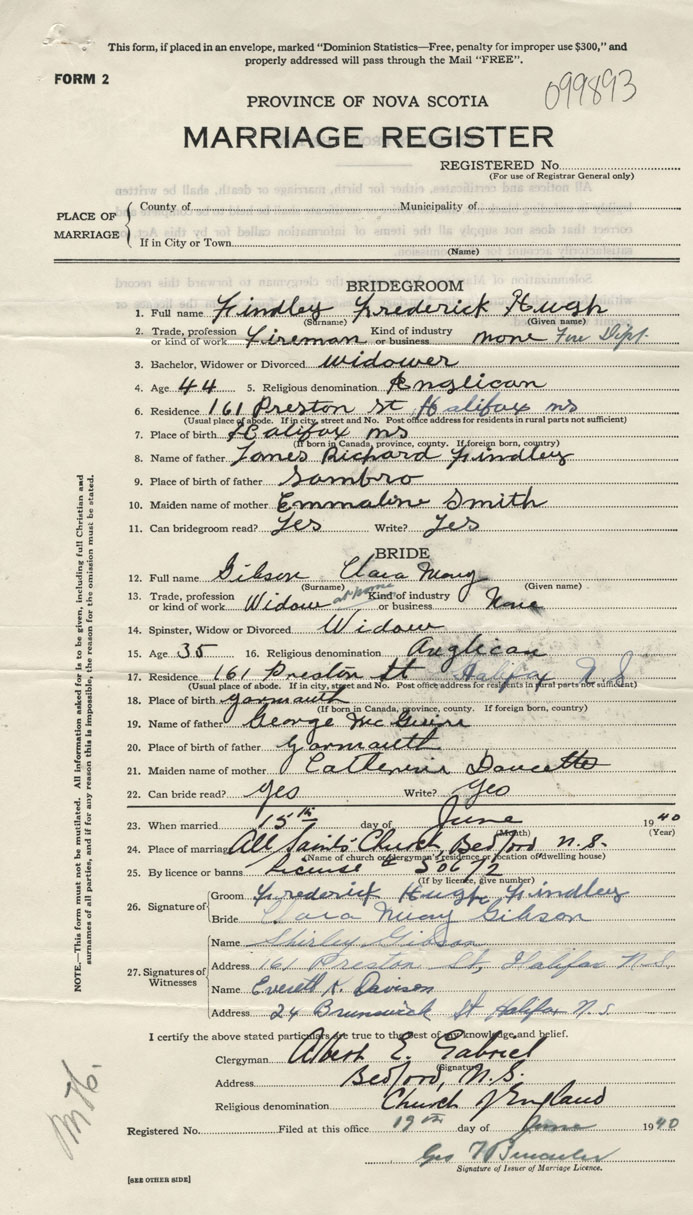 This form, if placed in an envelope, marked "Dominion Statistics—Free, penalty for improper use $300," and
properly addressed will pass through the Mail "FREE".
FORM 2
099893
PROVINCE OF NOVA SCOTIA
MARRIAGE REGISTER
REGISTERED No.
(For use of Registrar General only)
PLACE OF MARRIAGE
County of Municipality of
If in City or Town
(Name)
BRIDEGROOM
1. Full name Findley Frederick Hugh
(Surname) (Given name)
2. Trade, profession or kind of work Fireman Kind of industry or business none Fire Dept.
3. Bachelor, Widower or Divorced widower
4. Age 44 5. Religious denomination Anglican
6. Residence 161 Preston St Halifax ns
(Usual place of abode. If in city, street and No. Post office address for residents in rural parts not sufficient)
7. Place of birth Halifax ns
(If born in Canada, province, county. If foreign born, country)
8. Name of father James Richard Findley
9. Place of birth of father Sambro
10. Maiden name of mother Emmaline Smith
11. Can bridegroom read? Yes Write? Yes
BRIDE
12. Full name Gibson Clara May
(Surname) (Given name)
13. Trade, profession or kind of work Widow at home Kind of industry or business None
14. Spinster, Widow or Divorced Widow
15. Age 35 16. Religious denomination Anglican
17. Residence 161 Preston St Halifax N S
(Usual place of abode. If in city, street and No. Post office address for residents in rural parts not sufficient)
18. Place of birth Yarmouth
(If born in Canada, province, county. If foreign born, country)
19. Name of father George McGuire
20. Place of birth of father Yarmouth
21. Maiden name of mother Catherine Doucette
22. Can bride read? Yes Write? Yes
23. When married 15th day of June 1940
(Month) (Year)
24. Place of marriage All Saints Church, Bedford N.S.
(Name of church or clergyman's residence or location of dwelling house)
25. By licence or banns License # 50672
(If by licence, give number)
26. Signature of Groom Frederick Hugh Findley
Bride Clara May Gibson
27. Signatures of Witnesses
Name Shirley Gibson
Address 161 Preston St, Halifax N.S.
Name Everett K. Davison
Address 24 Brunswick St Halifax N.S.
I certify the above stated particulars are true to the best of my knowledge and belief.
Clergyman Albert E. Gabriel
(Signature)
Address Bedford, N.S.
Religious denomination Church of England
Registered No. Filed at this office 19th day of June 1940
Geo
Signature of Issuer of Marriage Licence.
[SEE OTHER SIDE]
NOTE.—This form must not be mutilated. All information asked for is to be given, including full Christian and
surnames of all parties, and if for any reason this is impossible, the reason for the omission must be stated.